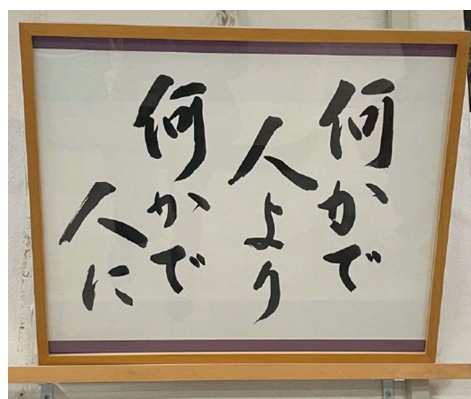 何かで
人より
何かで
人に